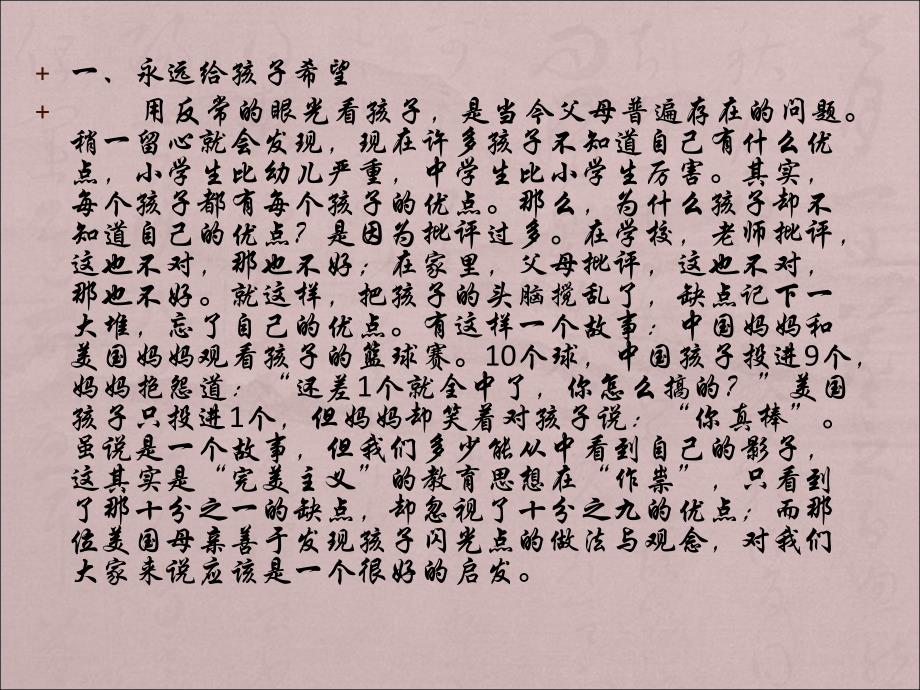 一、永远给孩子希望
用反常的眼光看孩子，是当今父母普遍存在的问题。
稍一留心就会发现，现在许多孩子不知道自己有什么优
点，小学生比幼儿严重，中学生比小学生厉害。其实，
每个孩子都有每个孩子的优点。那么，为什么孩子却不
知道自己的优点？是因为批评过多。在学校，老师批评，
这也不对，那也不好；在家里，父母批评，这也不对，
那也不好。就这样，把孩子的头脑搅乱了，缺点记下一
大堆，忘了自己的优点。有这样一个故事：中国妈妈和
美国妈妈观看孩子的篮球赛。10个球，中国孩子投进9个，
妈妈抱怨道：“还差1个就全中了，你怎么搞的？”美国
孩子只投进1个，但妈妈却笑着对孩子说：“你真棒”。
虽说是一个故事，但我们多少能从中看到自己的影子，
这其实是“完美主义”的教育思想在“作祟”，只看到
了那十分之一的缺点，却忽视了十分之九的优点；而那
位美国母亲善于发现孩子闪光点的做法与观念，对我们
大家来说应该是一个很好的启发。